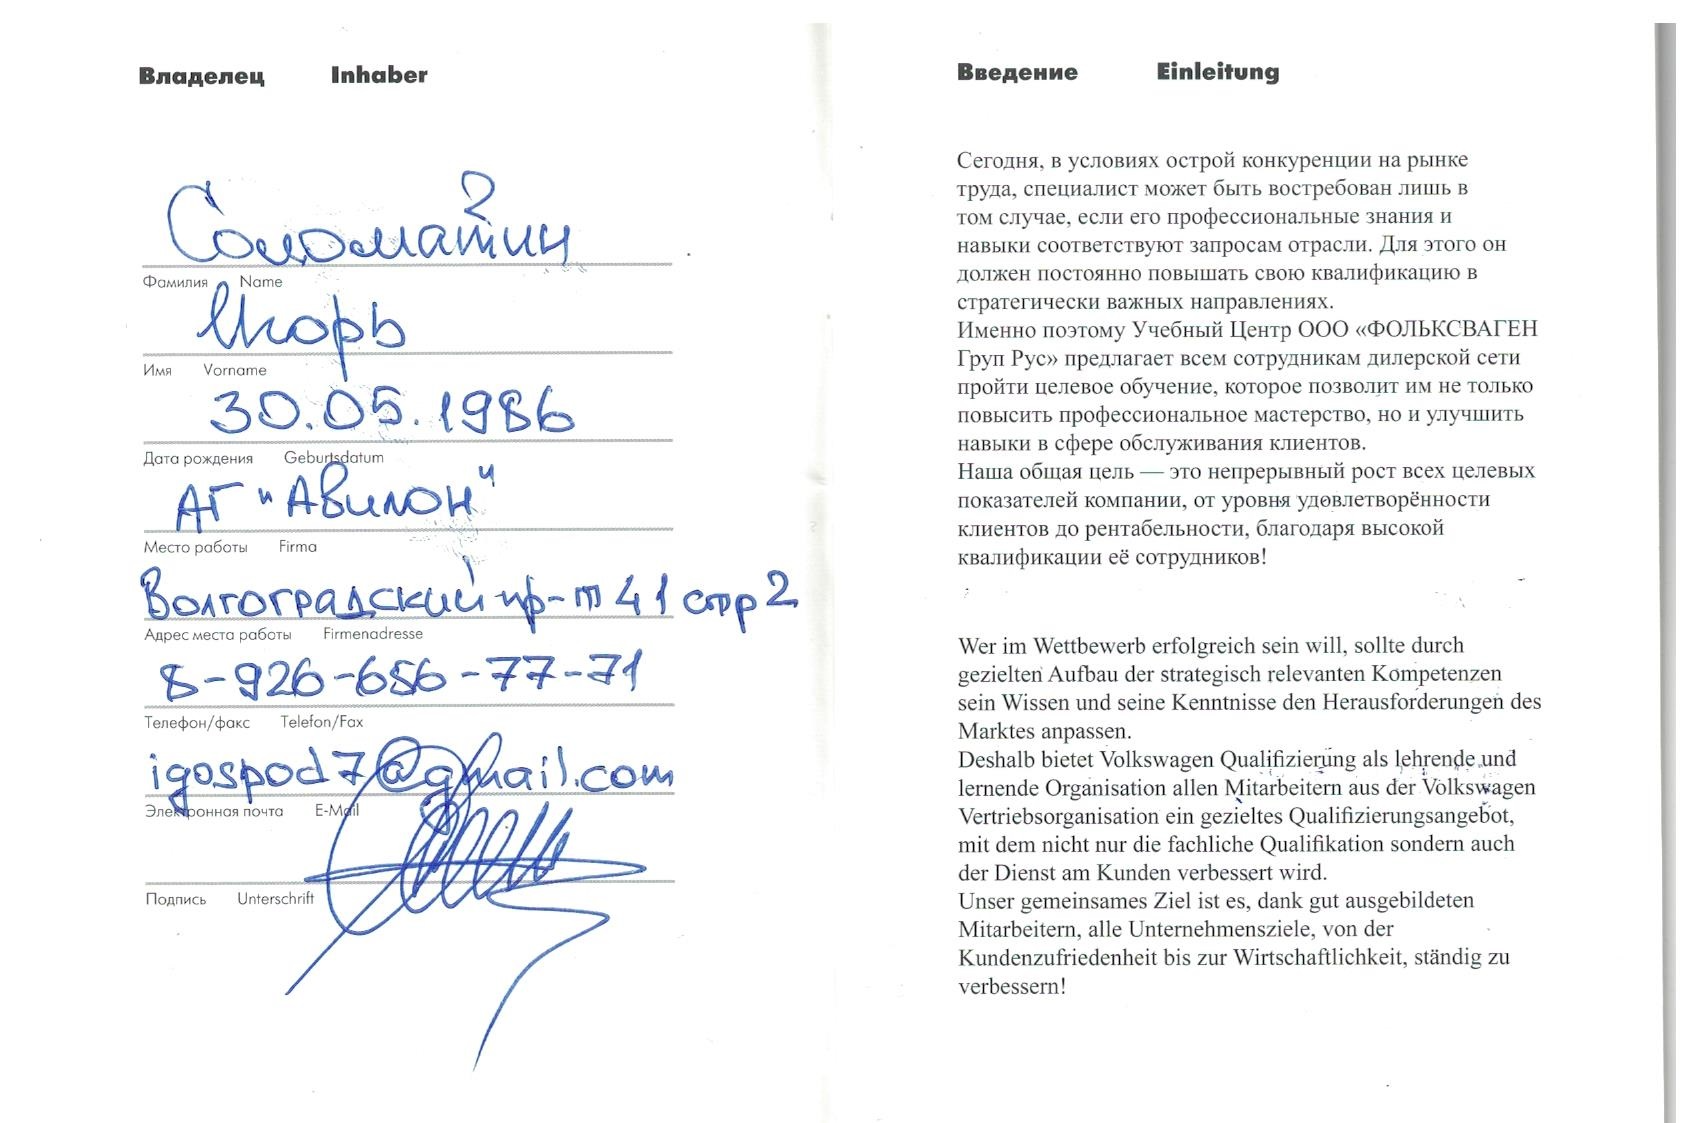 Владелец Inhaber
Соломатин
Фамилия Name
Игорь
Имя Vorname
30.05.1986
Дата рождения Geburtsdatum
АГ "Авилон"
Место работы Firma
Волгоградский пр-т 41 стр 2
Адрес места работы Firmenadresse
8-926-656-77-71
Телефон/факс Telefon/Fax
igospod7@gmail.com
Электронная почта E-Mail
Подпись Unterschrift
Введение Einleitung
Сегодня, в условиях острой конкуренции на рынке
труда, специалист может быть востребован лишь в
том случае, если его профессиональные знания и
навыки соответствуют запросам отрасли. Для этого он
должен постоянно повышать свою квалификацию в
стратегически важных направлениях.
Именно поэтому Учебный Центр ООО «ФОЛЬКСВАГЕН
Груп Рус» предлагает всем сотрудникам дилерской сети
пройти целевое обучение, которое позволит им не только
повысить профессиональное мастерство, но и улучшить
навыки в сфере обслуживания клиентов.
Наша общая цель — это непрерывный рост всех целевых
показателей компании, от уровня удовлетворённости
клиентов до рентабельности, благодаря высокой
квалификации её сотрудников!
Wer im Wettbewerb erfolgreich sein will, sollte durch
gezielten Aufbau der strategisch relevanten Kompetenzen
sein Wissen und seine Kenntnisse den Herausforderungen des
Marktes anpassen.
Deshalb bietet Volkswagen Qualifizierung als lehrende und
lernende Organisation allen Mitarbeitern aus der Volkswagen
Vertriebsorganisation ein gezieltes Qualifizierungsangebot,
mit dem nicht nur die fachliche Qualifikation sondern auch
der Dienst am Kunden verbessert wird.
Unser gemeinsames Ziel ist es, dank gut ausgebildeten
Mitarbeitern, alle Unternehmensziele, von der
Kundenzufriedenheit bis zur Wirtschaftlichkeit, ständig zu
verbessern!